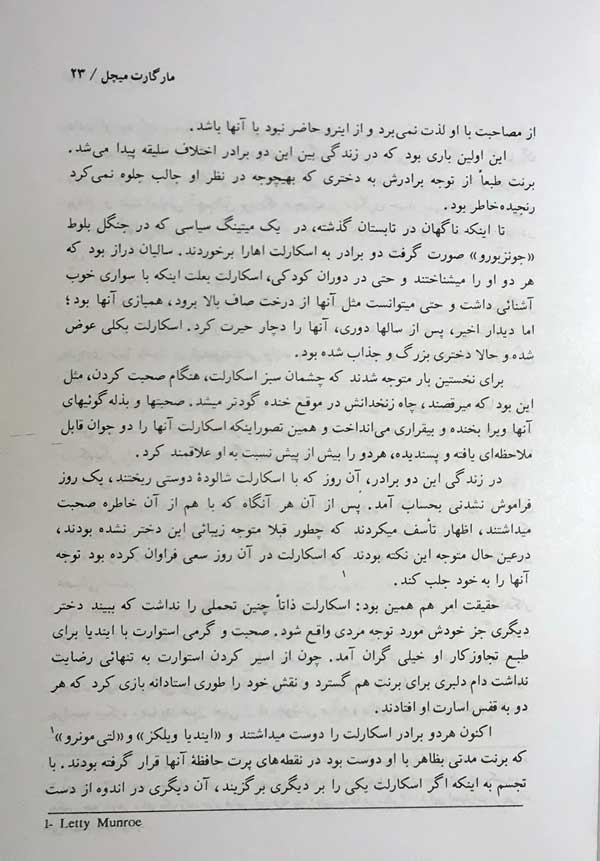 مارگارت میچل / ۲۳
از مصاحبت با او لذت نمی‌برد و از اینرو حاضر نبود با آنها باشد.
این اولین باری بود که در زندگی بین این دو برادر اختلاف سلیقه پیدا می‌شد.
برنت طبعاً از توجه برادرش به دختری که بهیچوجه در نظر او جالب جلوه نمی‌کرد
رنجیده‌خاطر بود.
تا اینکه ناگهان در تابستان گذشته، در یک میتینگ سیاسی که در جنگل بلوط
«جونزبورو» صورت گرفت دو برادر به اسکارلت اهارا برخوردند. سالیان دراز بود که
هر دو او را میشناختند و حتی در دوران کودکی، اسکارلت بعلت اینکه با سواری خوب
آشنائی داشت و حتی میتوانست مثل آنها از درخت صاف بالا برود، همبازی آنها بود؛
اما دیدار اخیر، پس از سالها دوری، آنها را دچار حیرت کرد. اسکارلت بکلی عوض
شده و حالا دختری بزرگ و جذاب شده بود.
برای نخستین بار متوجه شدند که چشمان سبز اسکارلت، هنگام صحبت کردن، مثل
این بود که میرقصند، چاه زنخدانش در موقع خنده گودتر میشد. صحبتها و بذله گوئیهای
آنها ویرا بخنده و بیقراری می‌انداخت و همین تصوراینکه اسکارلت آنها را دو جوان قابل
ملاحظه‌ای یافته و پسندیده، هردو را بیش از پیش نسبت به او علاقمند کرد.
در زندگی این دو برادر، آن روز که با اسکارلت شالودهٔ دوستی ریختند، یک روز
فراموش نشدنی بحساب آمد. پس از آن هر آنگاه که با هم از آن خاطره صحبت
میداشتند، اظهار تأسف میکردند که چطور قبلا متوجه زیبائی این دختر نشده بودند،
درعین حال متوجه این نکته بودند که اسکارلت در آن روز سعی فراوان کرده بود توجه
آنها را به خود جلب کند.
حقیقت امر هم همین بود: اسکارلت ذاتاً چنین تحملی را نداشت که ببیند دختر
دیگری جز خودش مورد توجه مردی واقع شود. صحبت و گرمی استوارت با ایندیا برای
طبع تجاوزکار او خیلی گران آمد. چون از اسیر کردن استوارت به تنهائی رضایت
نداشت دام دلبری برای برنت هم گسترد و نقش خود را طوری استادانه بازی کرد که هر
دو به قفس اسارت او افتادند.
اکنون هردو برادر اسکارلت را دوست میداشتند و «ایندیا ویلکز» و«لتی مونرو»۱
که برنت مدتی بظاهر با او دوست بود در نقطه‌های پرت حافظهٔ آنها قرار گرفته بودند. با
تجسم به اینکه اگر اسکارلت یکی را بر دیگری برگزیند، آن دیگری در اندوه از دست
1- Letty Munroe